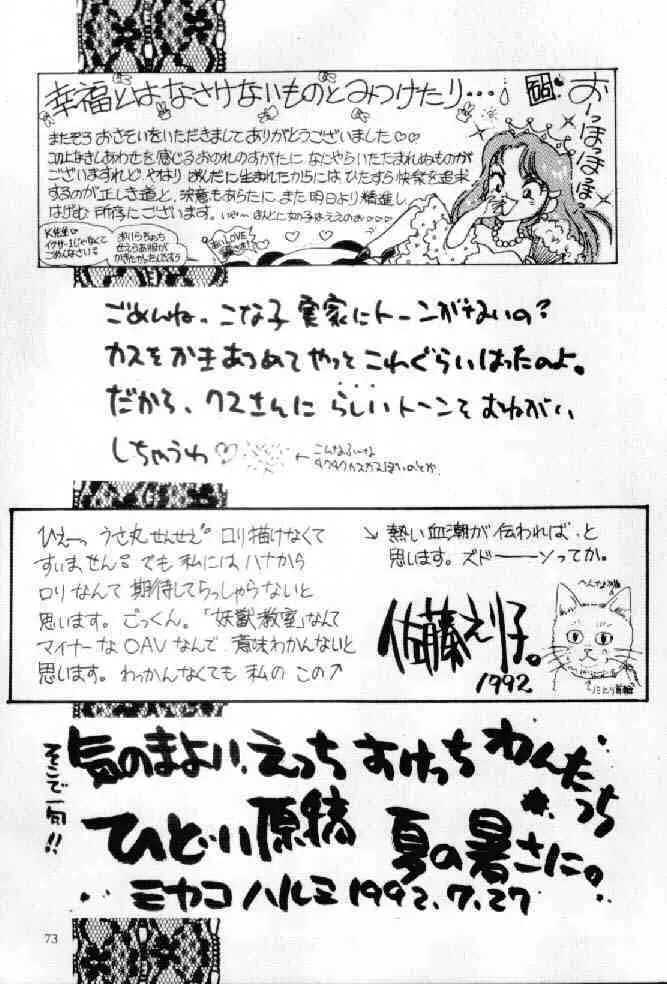 幸福とは、なさけないものとみつけたり…。
おーっほっほっほ
またぞろ おさそいをいただきまして ありがとうございました♡♡
この上なきしあわせを感じるおのれのすがたに なにやらいたたまれぬものが
ございますれど、やはり おんなに生まれたからには ひたすら快楽を追求
するのが正しき道と、決意もあらたに、また明日より精進し
はげむ 所存にございます。いやーほんとに女の子はええのお
K先生♡
イクサー1じゃなくて
ごめんなさい
ごめんね、こな子 実家にトーンがないの?
カスをかきあつめてやっとこれぐらいはったのよ。
だから、クスさんに らしいトーンを おねがい
しちゃうわ♡
←こんなふーな
ひえーっ うさ丸せんせえ ロリ描けなくて
すいません。でも私にはハナから
ロリなんて 期待してらっしゃらないと
思います。ごっくん。「妖獣教室」なんて
マイナーなOAVなんで、意味わかんないと
思います。わっかんなくても 私の この↗
↘ 熱い血潮が 伝われば、と
思います。ズドーーンってか。
佐藤えり子。
1992
そこで一句!!
気のまよい、えっち すけっち わんたっち
ひどい原稿 夏の暑さに。
ミヤコ ハルミ 1992.7.27
73